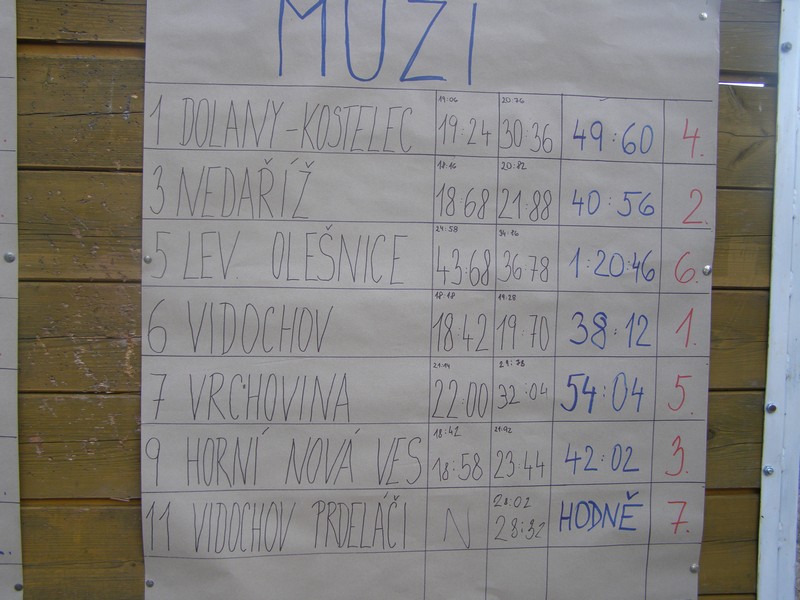 MUŽI
19:06 20:76
1 DOLANY-KOSTELEC 19:24 30:36 49:60 4.
18:16 20:82
3 NEDAŘÍŽ 18:68 21:88 40:56 2.
24:58 34:16
5 LEV. OLEŠNICE 43:68 36:78 1:20:46 6.
18:18 19:28
6 VIDOCHOV 18:42 19:70 38:12 1.
7 VRCHOVINA 22:00 32:04 54:04 5.
18:42 21:92
9 HORNÍ NOVÁ VES 18:58 23:44 42:02 3.
28:02
11 VIDOCHOV PRDELÁČI N 28:32 HODNĚ 7.